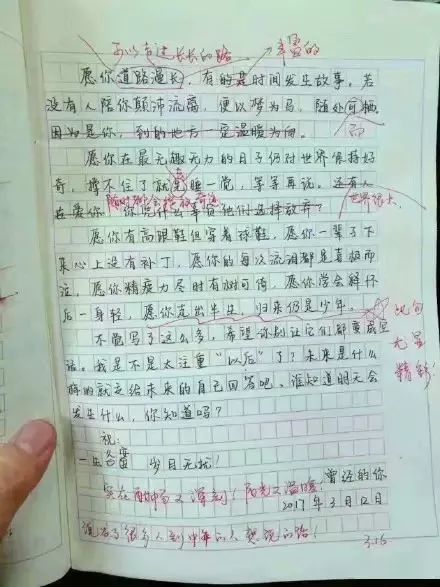 可以奔过长长的路
丰富的
愿你道路漫长，有的是时间发生故事。若
没有人陪你颠沛流离，便以梦为马，随处可栖
因为是你，到的地方一定温暖为向。
而
愿你在最无趣无力的日子仍对世界保持好
奇，撑不住了就先睡一觉，等等再说。还有人
在爱你，你凭什么辜负他们选择放弃？
世界你大
愿你有高跟鞋但穿着球鞋，愿你一辈子下
来心上没有补丁，愿你的每次流泪都是喜极而
泣，愿你精疲力尽时有树可倚，愿你学会释怀
后一身轻，愿你走出半生，归来仍是少年。
此句
尤显
精彩！
不觉写了这么多，希望你别让它们都变成空
话。我是不是太注重“以后”了？未来是什么
样的就交给未来的自己回答吧，谁知道明天会
发生什么，你知道吗？
祝：
一生名蕾 岁月无扰！
实在
又深刻！
又温暖
曾经的你
2017年3月12日
说出了很多人到中年的人
3.16